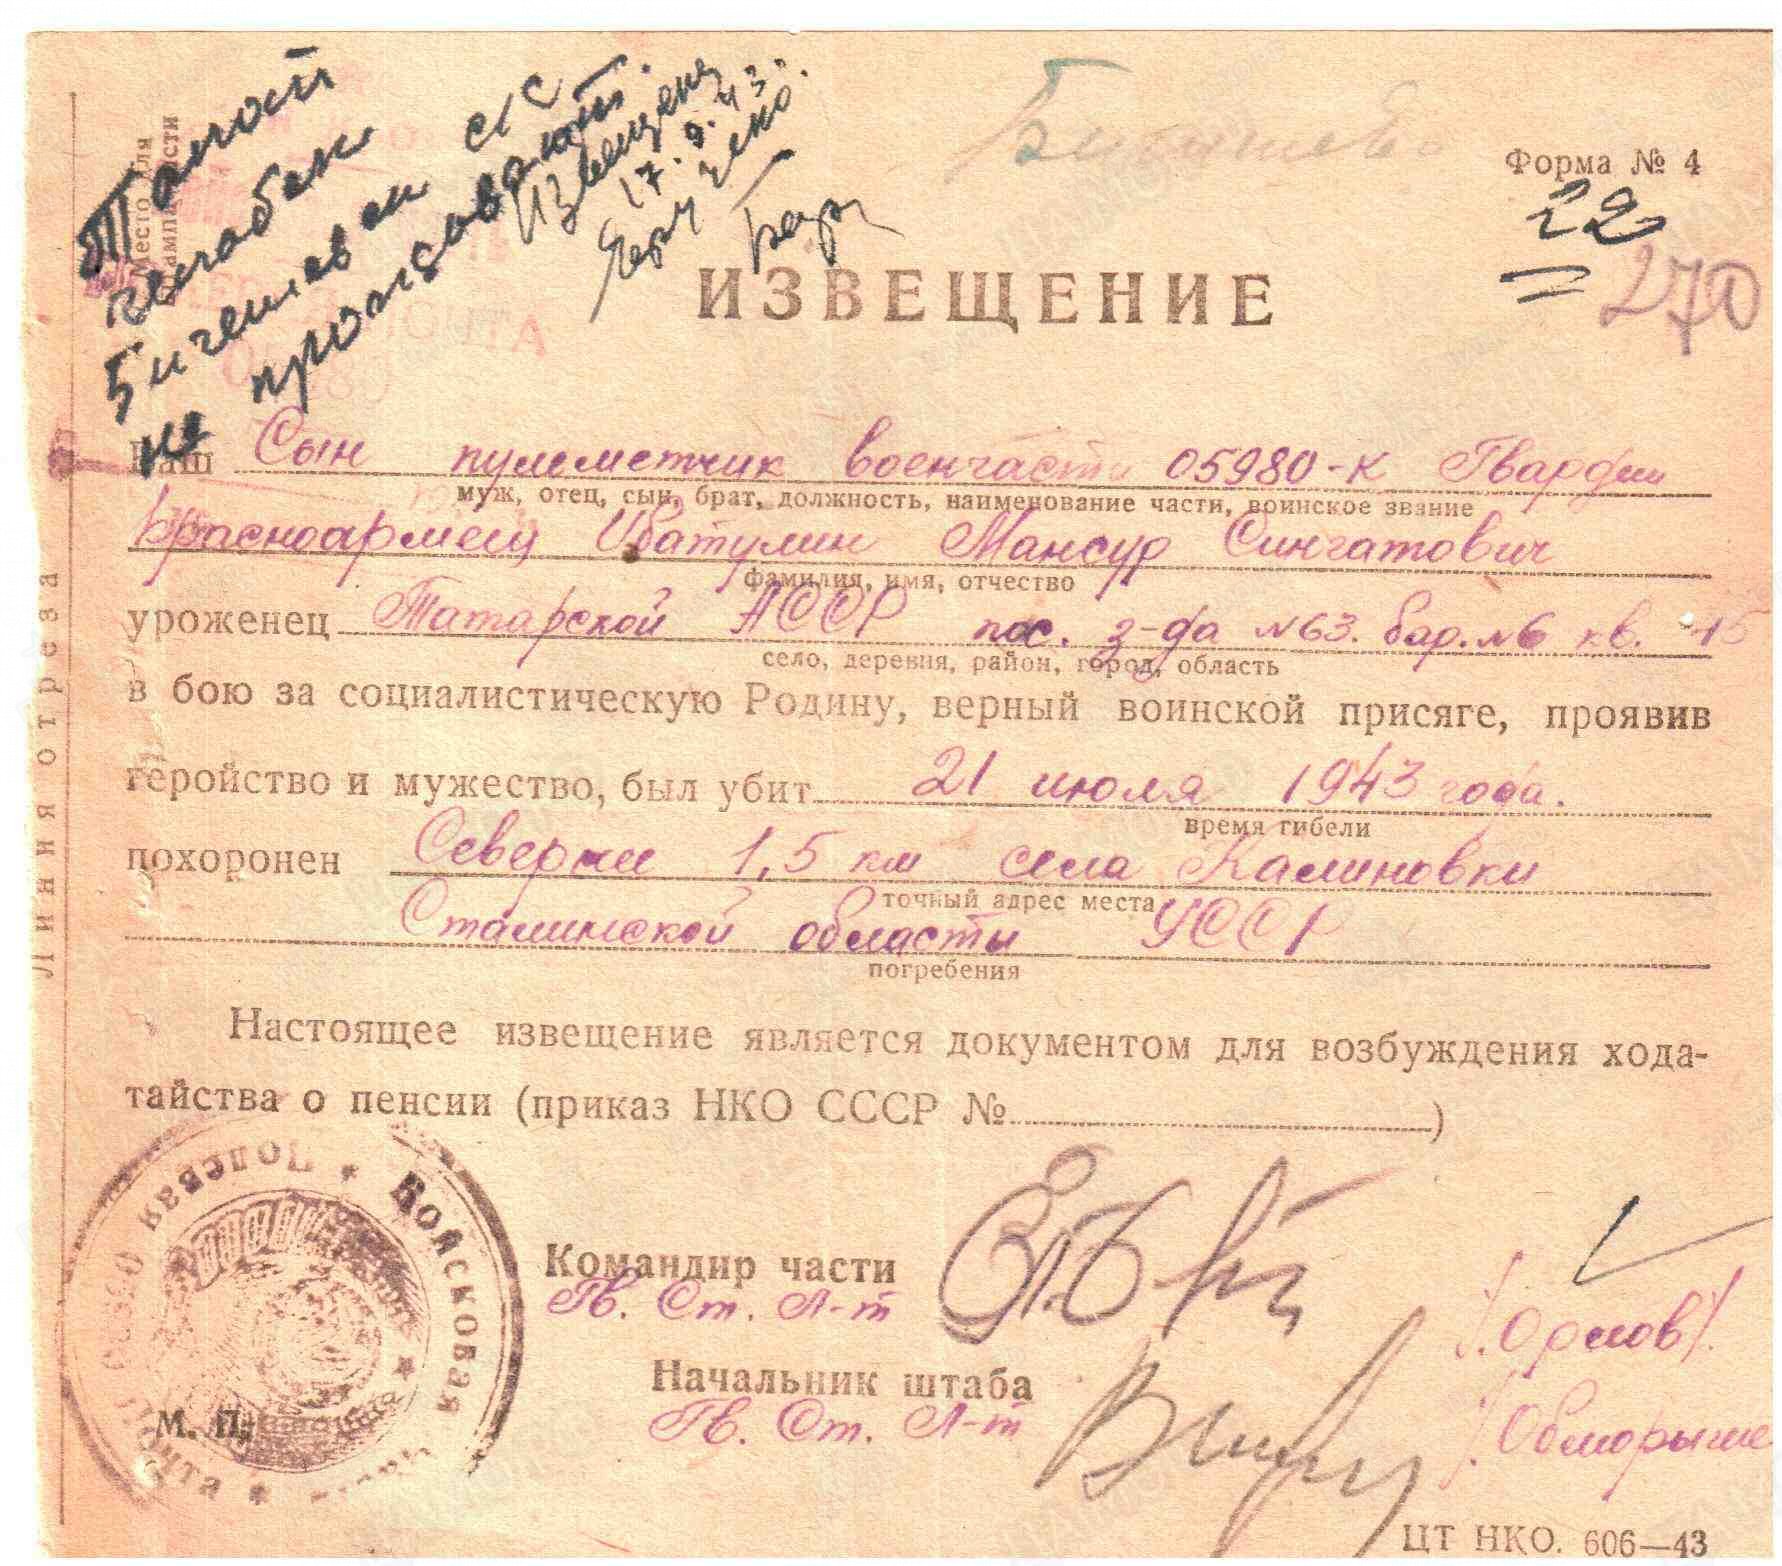 Место для
штампа части
Извещен
17.9.43.
Форма № 4
22
270
ИЗВЕЩЕНИЕ
ПОЧТА
Ваш Сын пулеметчик военчасти 05980-к Гвардии
муж, отец, сын, брат, должность, наименование части, воинское звание
Красноармеец Ибатулин Мансур Сингатович
фамилия, имя, отчество
уроженец Татарской АССР пос. з-да №63. бар. №6 кв. 15
село, деревня, район, город, область
в бою за социалистическую Родину, верный воинской присяге, проявив
геройство и мужество, был убит 21 июля 1943 года.
время гибели
похоронен Севернее 1,5 км села Калиновки
точный адрес места
Сталинской области УССР
погребения
Линия отреза
Настоящее извещение является документом для возбуждения хода-
тайства о пенсии (приказ НКО СССР № )
Войсковая
Полевая почта
Командир части
Гв. Ст. Л-т /Орлов/.
Начальник штаба
Гв. Ст. Л-т
М. П.
ЦТ НКО. 606—43